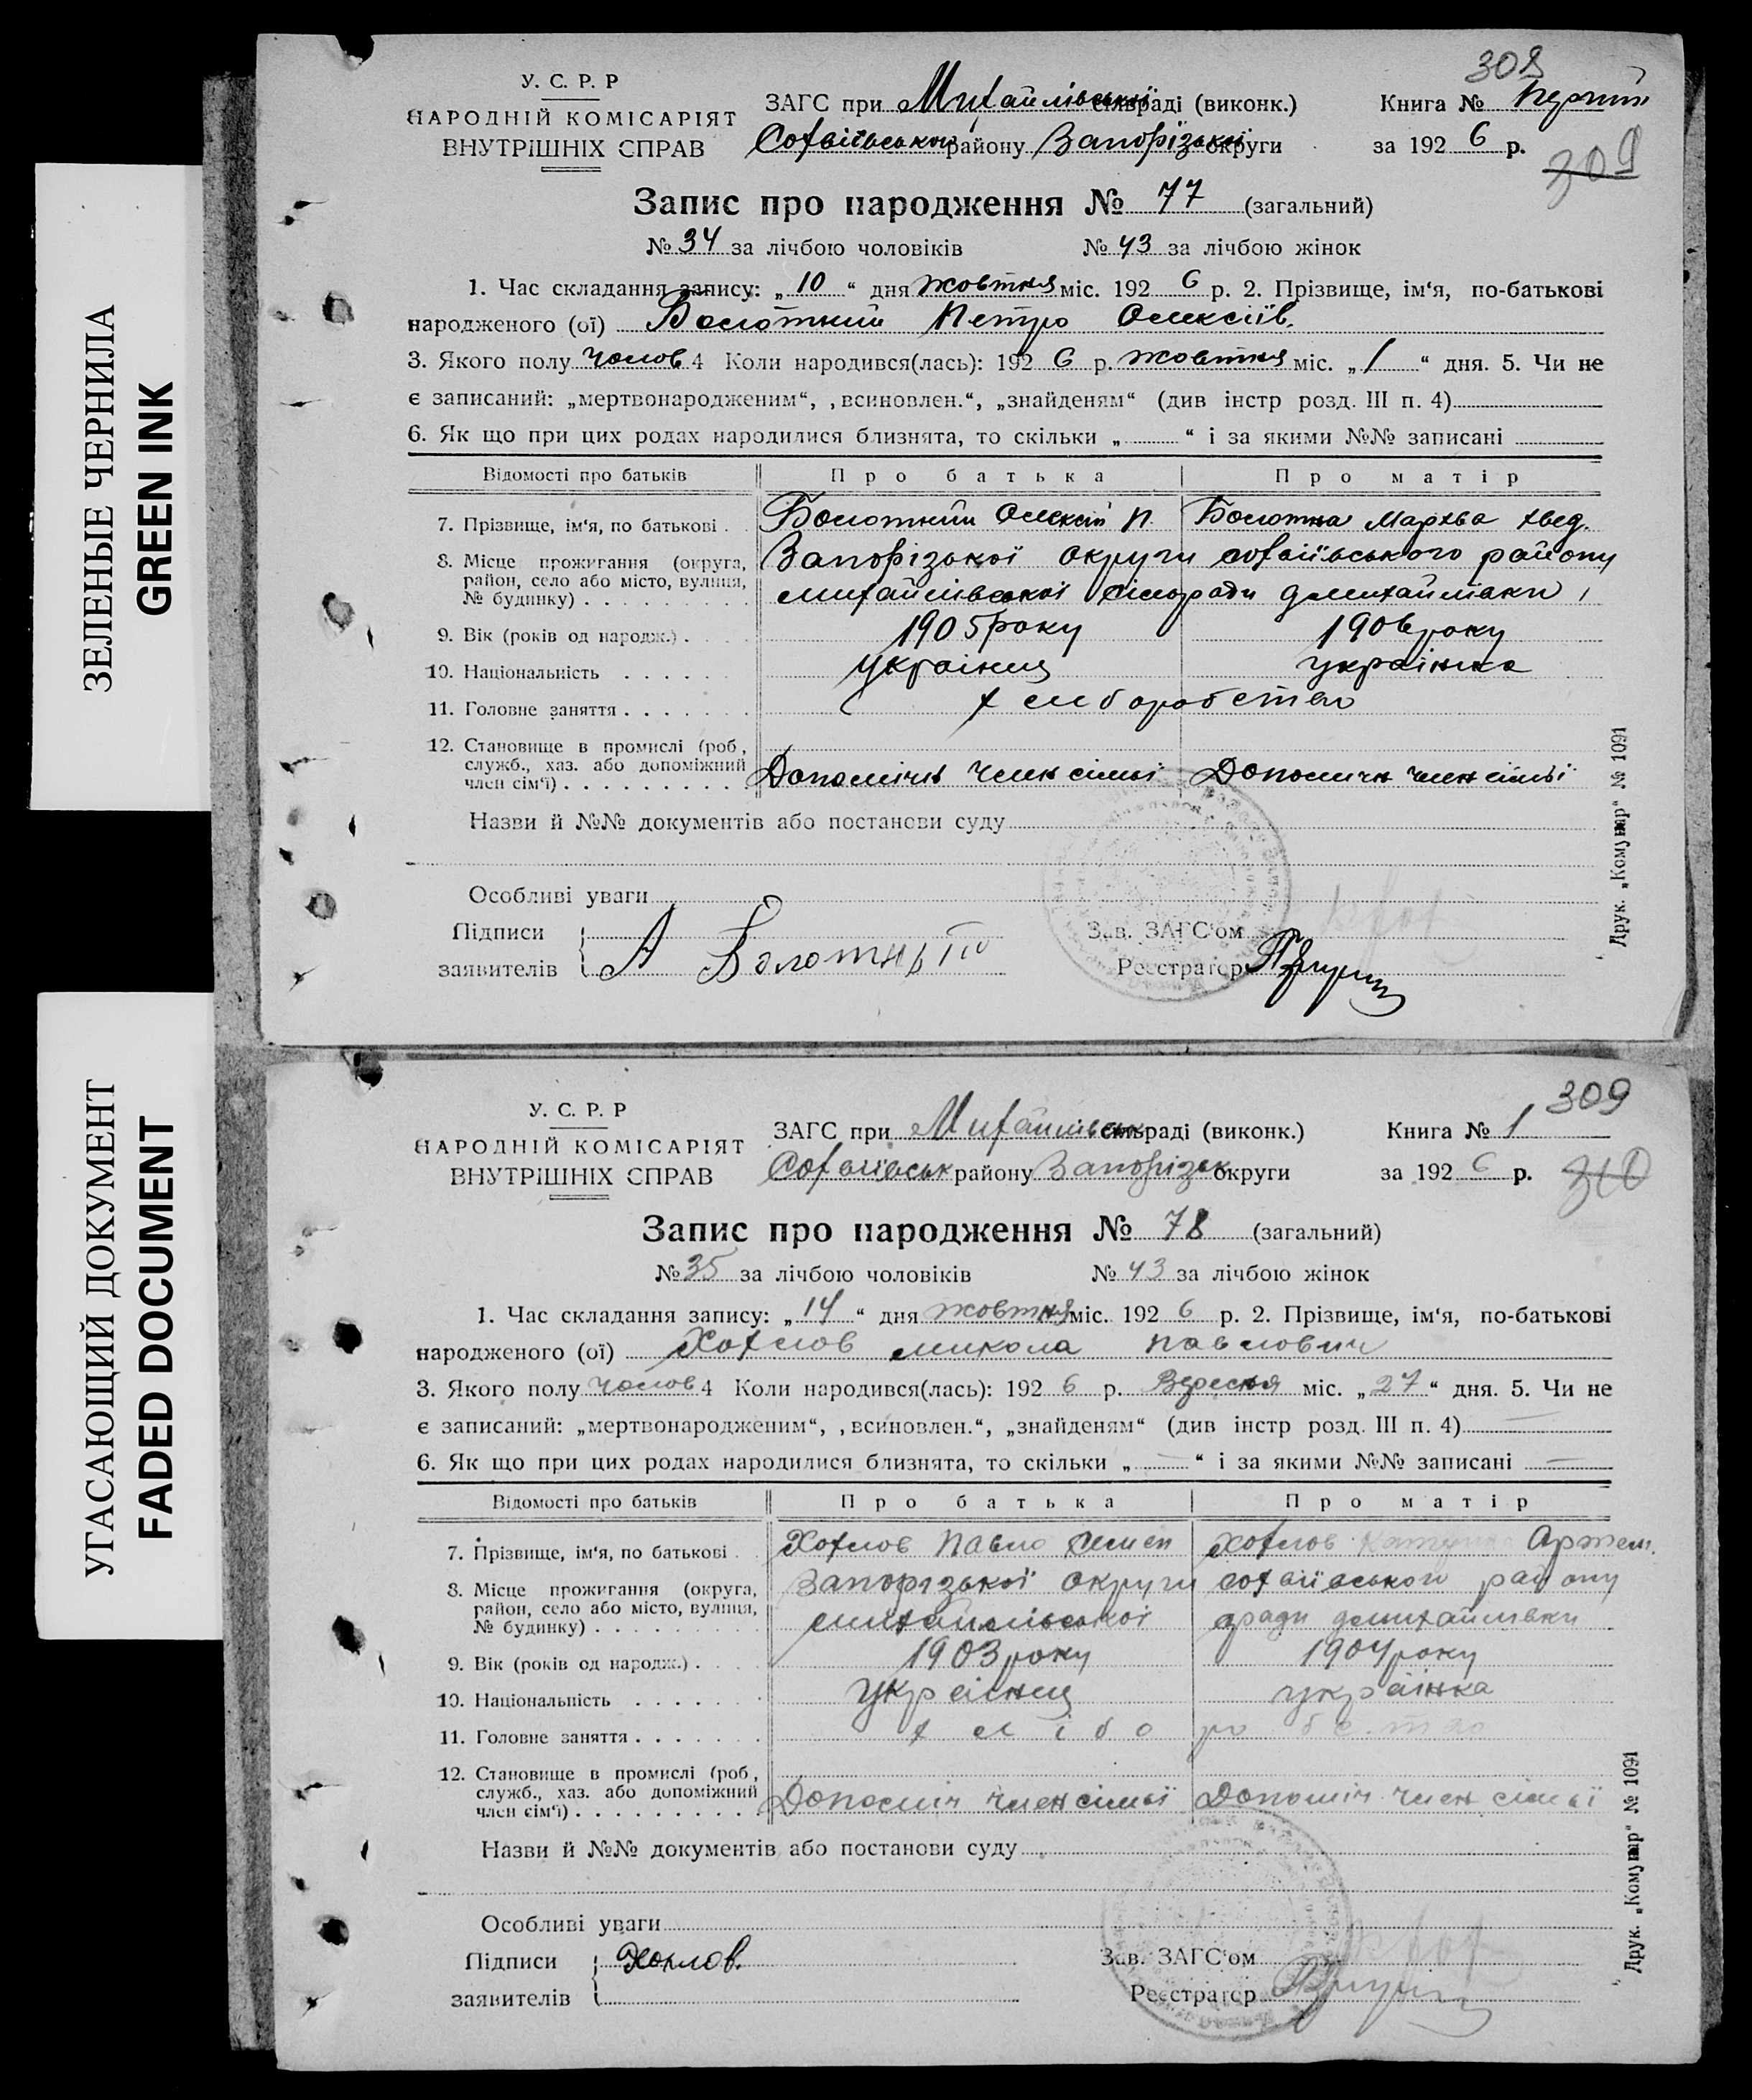 ЗЕЛЕНЫЕ ЧЕРНИЛА
GREEN INK
УГАСАЮЩИЙ ДОКУМЕНТ
FADED DOCUMENT
308
У. С. Р. Р
НАРОДНІЙ КОМІСАРІЯТ
ВНУТРІШНІХ СПРАВ
ЗАГС при Михайлівській сільраді (виконк.)
Софіївського району Запорізької округи
Книга № Перший
за 1926 р.
309
Запис про народження № 77 (загальний)
№ 34 за лічбою чоловіків № 43 за лічбою жінок
1. Час складання запису: „10“ дня жовтня міс. 1926 р. 2. Прізвище, ім‘я, по-батькові
народженого (ої) Болотний Петро Олексіїв.
3. Якого полу чолов 4 Коли народився(лась): 1926 р. жовтня міс. „1“ дня. 5. Чи не
є записаний: „мертвонародженим“, ‚всиновлен.“, „знайденям“ (див інстр розд. III п. 4)
6. Як що при цих родах народилися близнята, то скільки „ “ і за якими №№ записані
Відомості про батьків Про батька Про матір
7. Прізвище, ім‘я, по батькові . Болотний Олексій П. Болотна Мархва Хвед.
8. Місце прожигання (округа, район, село або місто, вулиця, № будинку) . Запорізької округи софіївського району
михайлівської сільради д михайлівки
9. Вік (років од народж.) . 1905 року 1906 року
10. Національність . українць українка
11. Головне заняття . хліборобство
12. Становище в промислі (роб, служб., хаз. або допоміжний член сім‘ї) . Допомічн член сімьї Допомічн член сімьї
Назви й №№ документів або постанови суду
Особливі уваги
Підписи заявителів А Болотный
Зав. ЗАГС‘ом
Реєстратор
Друк. „Комунар“ № 1091
309
У. С. Р. Р
НАРОДНІЙ КОМІСАРІЯТ
ВНУТРІШНІХ СПРАВ
ЗАГС при Михайлівськ сільраді (виконк.)
Софіївськ району Запорізьк округи
Книга № 1
за 1926 р.
310
Запис про народження № 78 (загальний)
№ 35 за лічбою чоловіків № 43 за лічбою жінок
1. Час складання запису: „14“ дня жовтня міс. 1926 р. 2. Прізвище, ім‘я, по-батькові
народженого (ої) Хохлов микола павлович
3. Якого полу чолов 4 Коли народився(лась): 1926 р. Вересня міс. „27“ дня. 5. Чи не
є записаний: „мертвонародженим“, ‚всиновлен.“, „знайденям“ (див інстр розд. III п. 4)
6. Як що при цих родах народилися близнята, то скільки „—“ і за якими №№ записані —
Відомості про батьків Про батька Про матір
7. Прізвище, ім‘я, по батькові . Хохлов Павло Семен Хохлов Артем.
8. Місце прожигання (округа, район, село або місто, вулиця, № будинку) . Запорізької округи софіївського району
михайлівської ради д михайлівки
9. Вік (років од народж.) . 1903 року 1904 року
10. Національність . українць українка
11. Головне заняття . хліборобство
12. Становище в промислі (роб, служб., хаз. або допоміжний член сім‘ї) . Допоміч член сімьї Допоміч член сімьї
Назви й №№ документів або постанови суду
Особливі уваги
Підписи заявителів Хохлов.
Зав. ЗАГС‘ом
Реєстратор
Друк. „Комунар“ № 1091